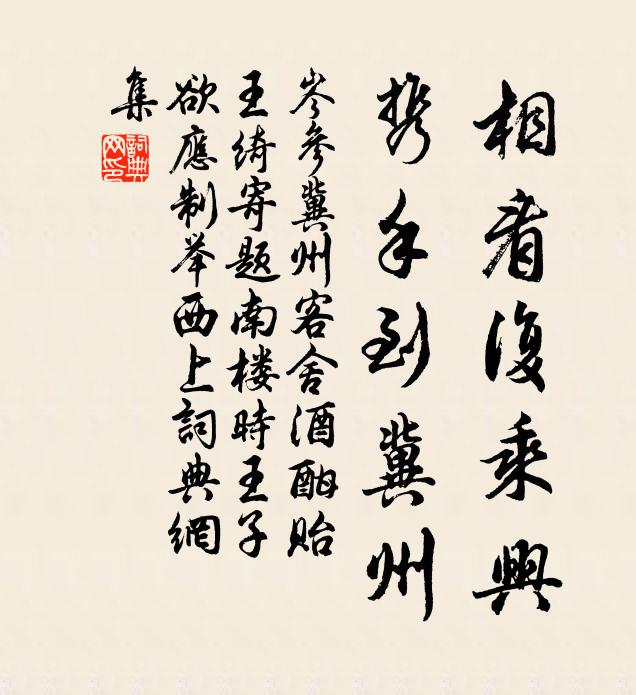 相看復乘興
携手到冀州
岑參冀州客舍酒酣貽
王綺寄題南楼時王子
欲應制举西上詞典網
集
詞典网印